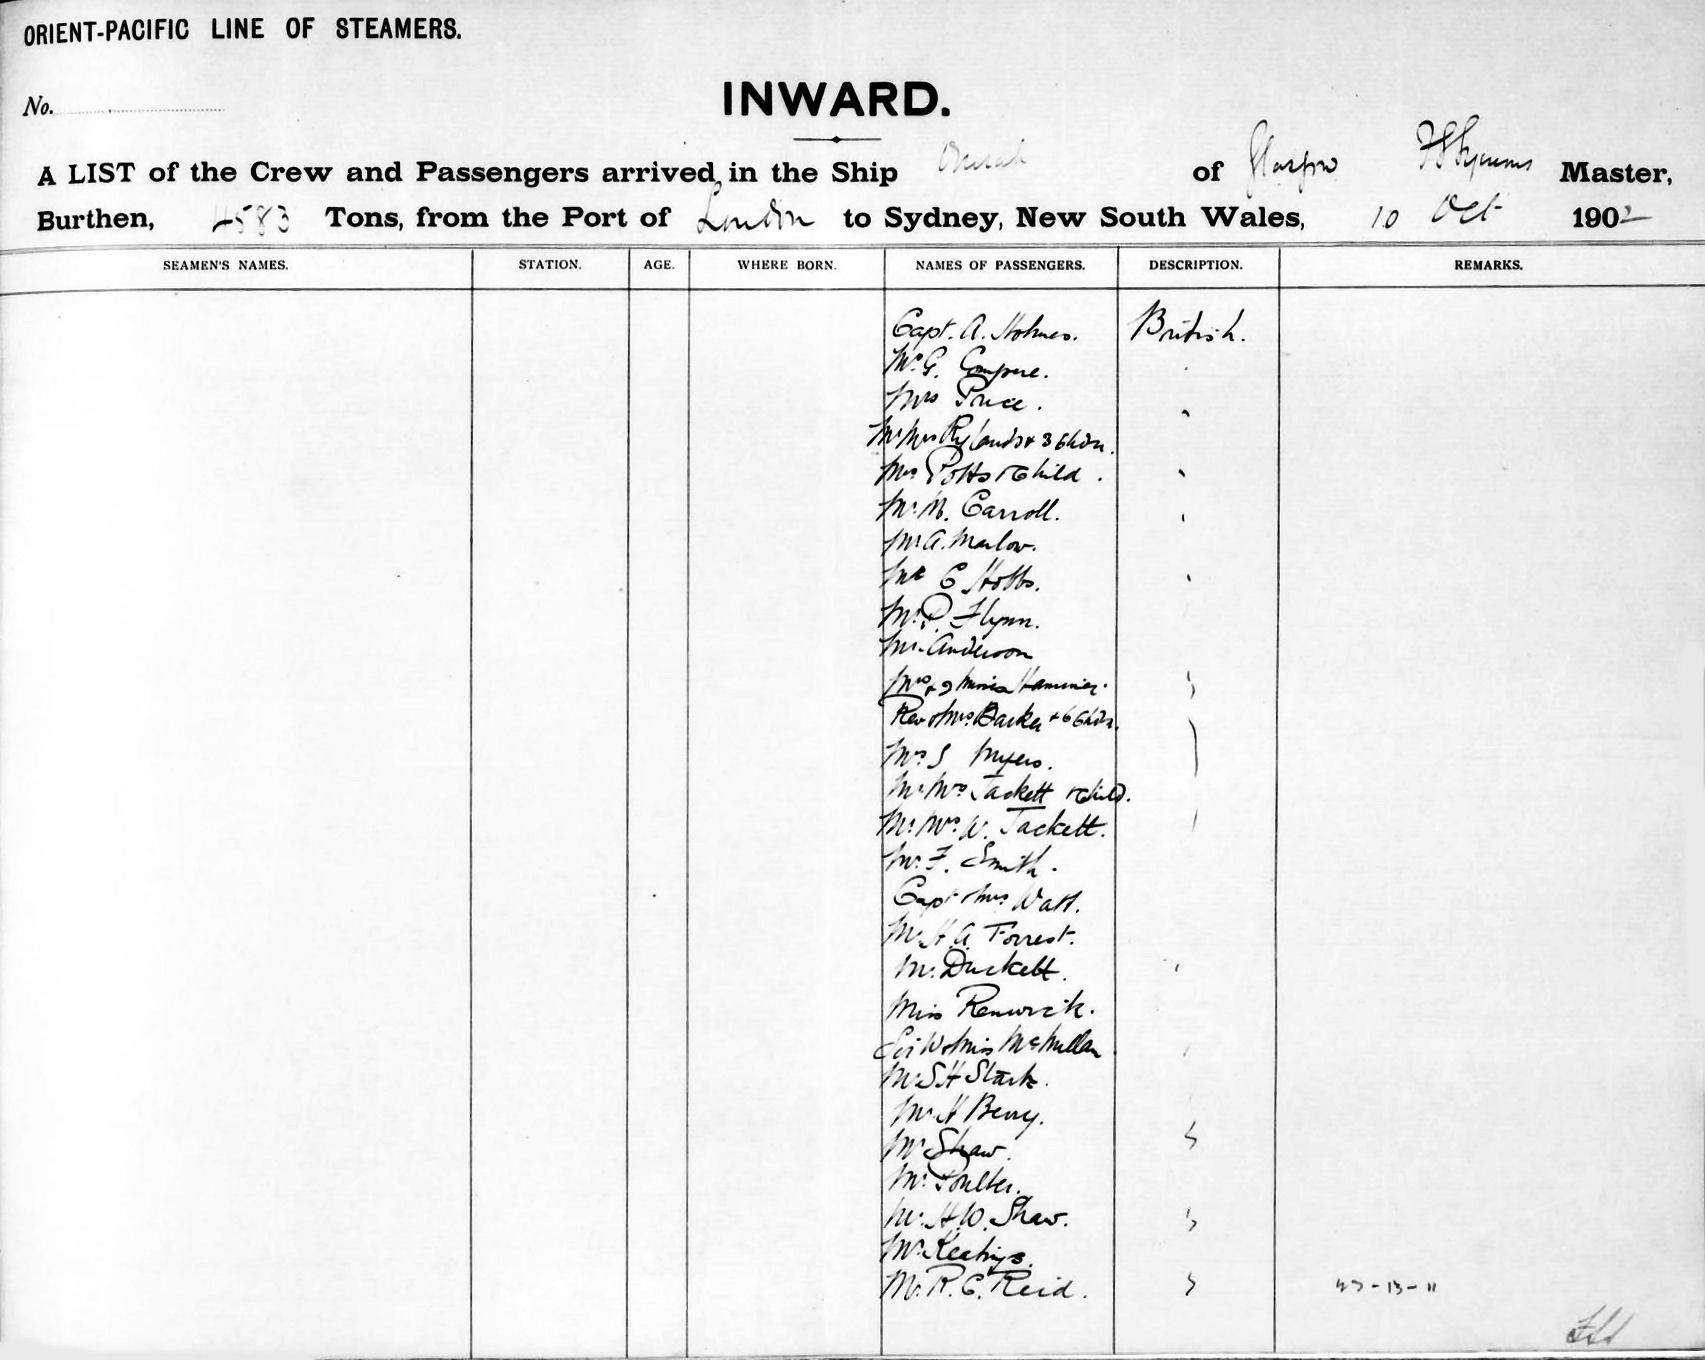 ORIENT-PACIFIC LINE OF STEAMERS.
No.
INWARD.
A LIST of the Crew and Passengers arrived in the Ship of Glasgow Master,
Burthen, 4583 Tons, from the Port of London to Sydney, New South Wales, 10 Oct 1902
SEAMEN'S NAMES. STATION. AGE. WHERE BORN. NAMES OF PASSENGERS. DESCRIPTION. REMARKS.
Capt. A. Holmes. British.
Mr G. Compere.
Mrs Price.
Mr Mrs Rylands + 3 Chdn.
Mrs Potts + Child.
Mr M. Carroll.
Mr A. Marlow.
Mr C Hobbs.
Mr P. Flynn.
Mr Anderson
Mrs + 2 Misses
Rev + Mrs Barker + 6 Chdn.
Mrs S Myers.
Mr Mrs Tackett + Child.
Mr Mrs W. Tackett.
Mr F. Smith.
Capt + Mrs Watt.
Mr H. A. Forrest.
Mr Duckett.
Miss Renwick.
Sir W + Miss McMillan
Mr S H Stark.
Mr H Berry.
Mr Shaw.
Mr Poulter.
Mr H. W. Shaw.
Mr Keatings.
Mr R. C. Reid.
47-13-11